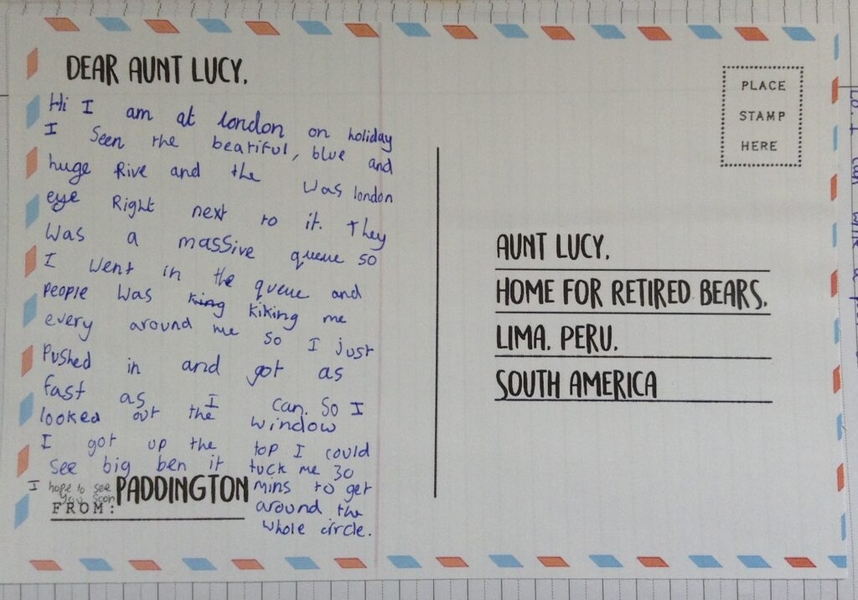 DEAR AUNT LUCY,
Hi I am at london on holiday
I seen the beatiful, blue and
huge Rive and the Was london
eye Right next to it. They
Was a massive queue so
I went in the queue and
People Was king kiking me
every around me so I just
Pushed in and got as
fast as I can. So I
looked out the window
I got up the top I could
see big ben it tuck me 30
mins to get
around the
whole circle.
I hope to see
you soon
FROM: PADDINGTON
PLACE
STAMP
HERE
AUNT LUCY,
HOME FOR RETIRED BEARS,
LIMA, PERU,
SOUTH AMERICA